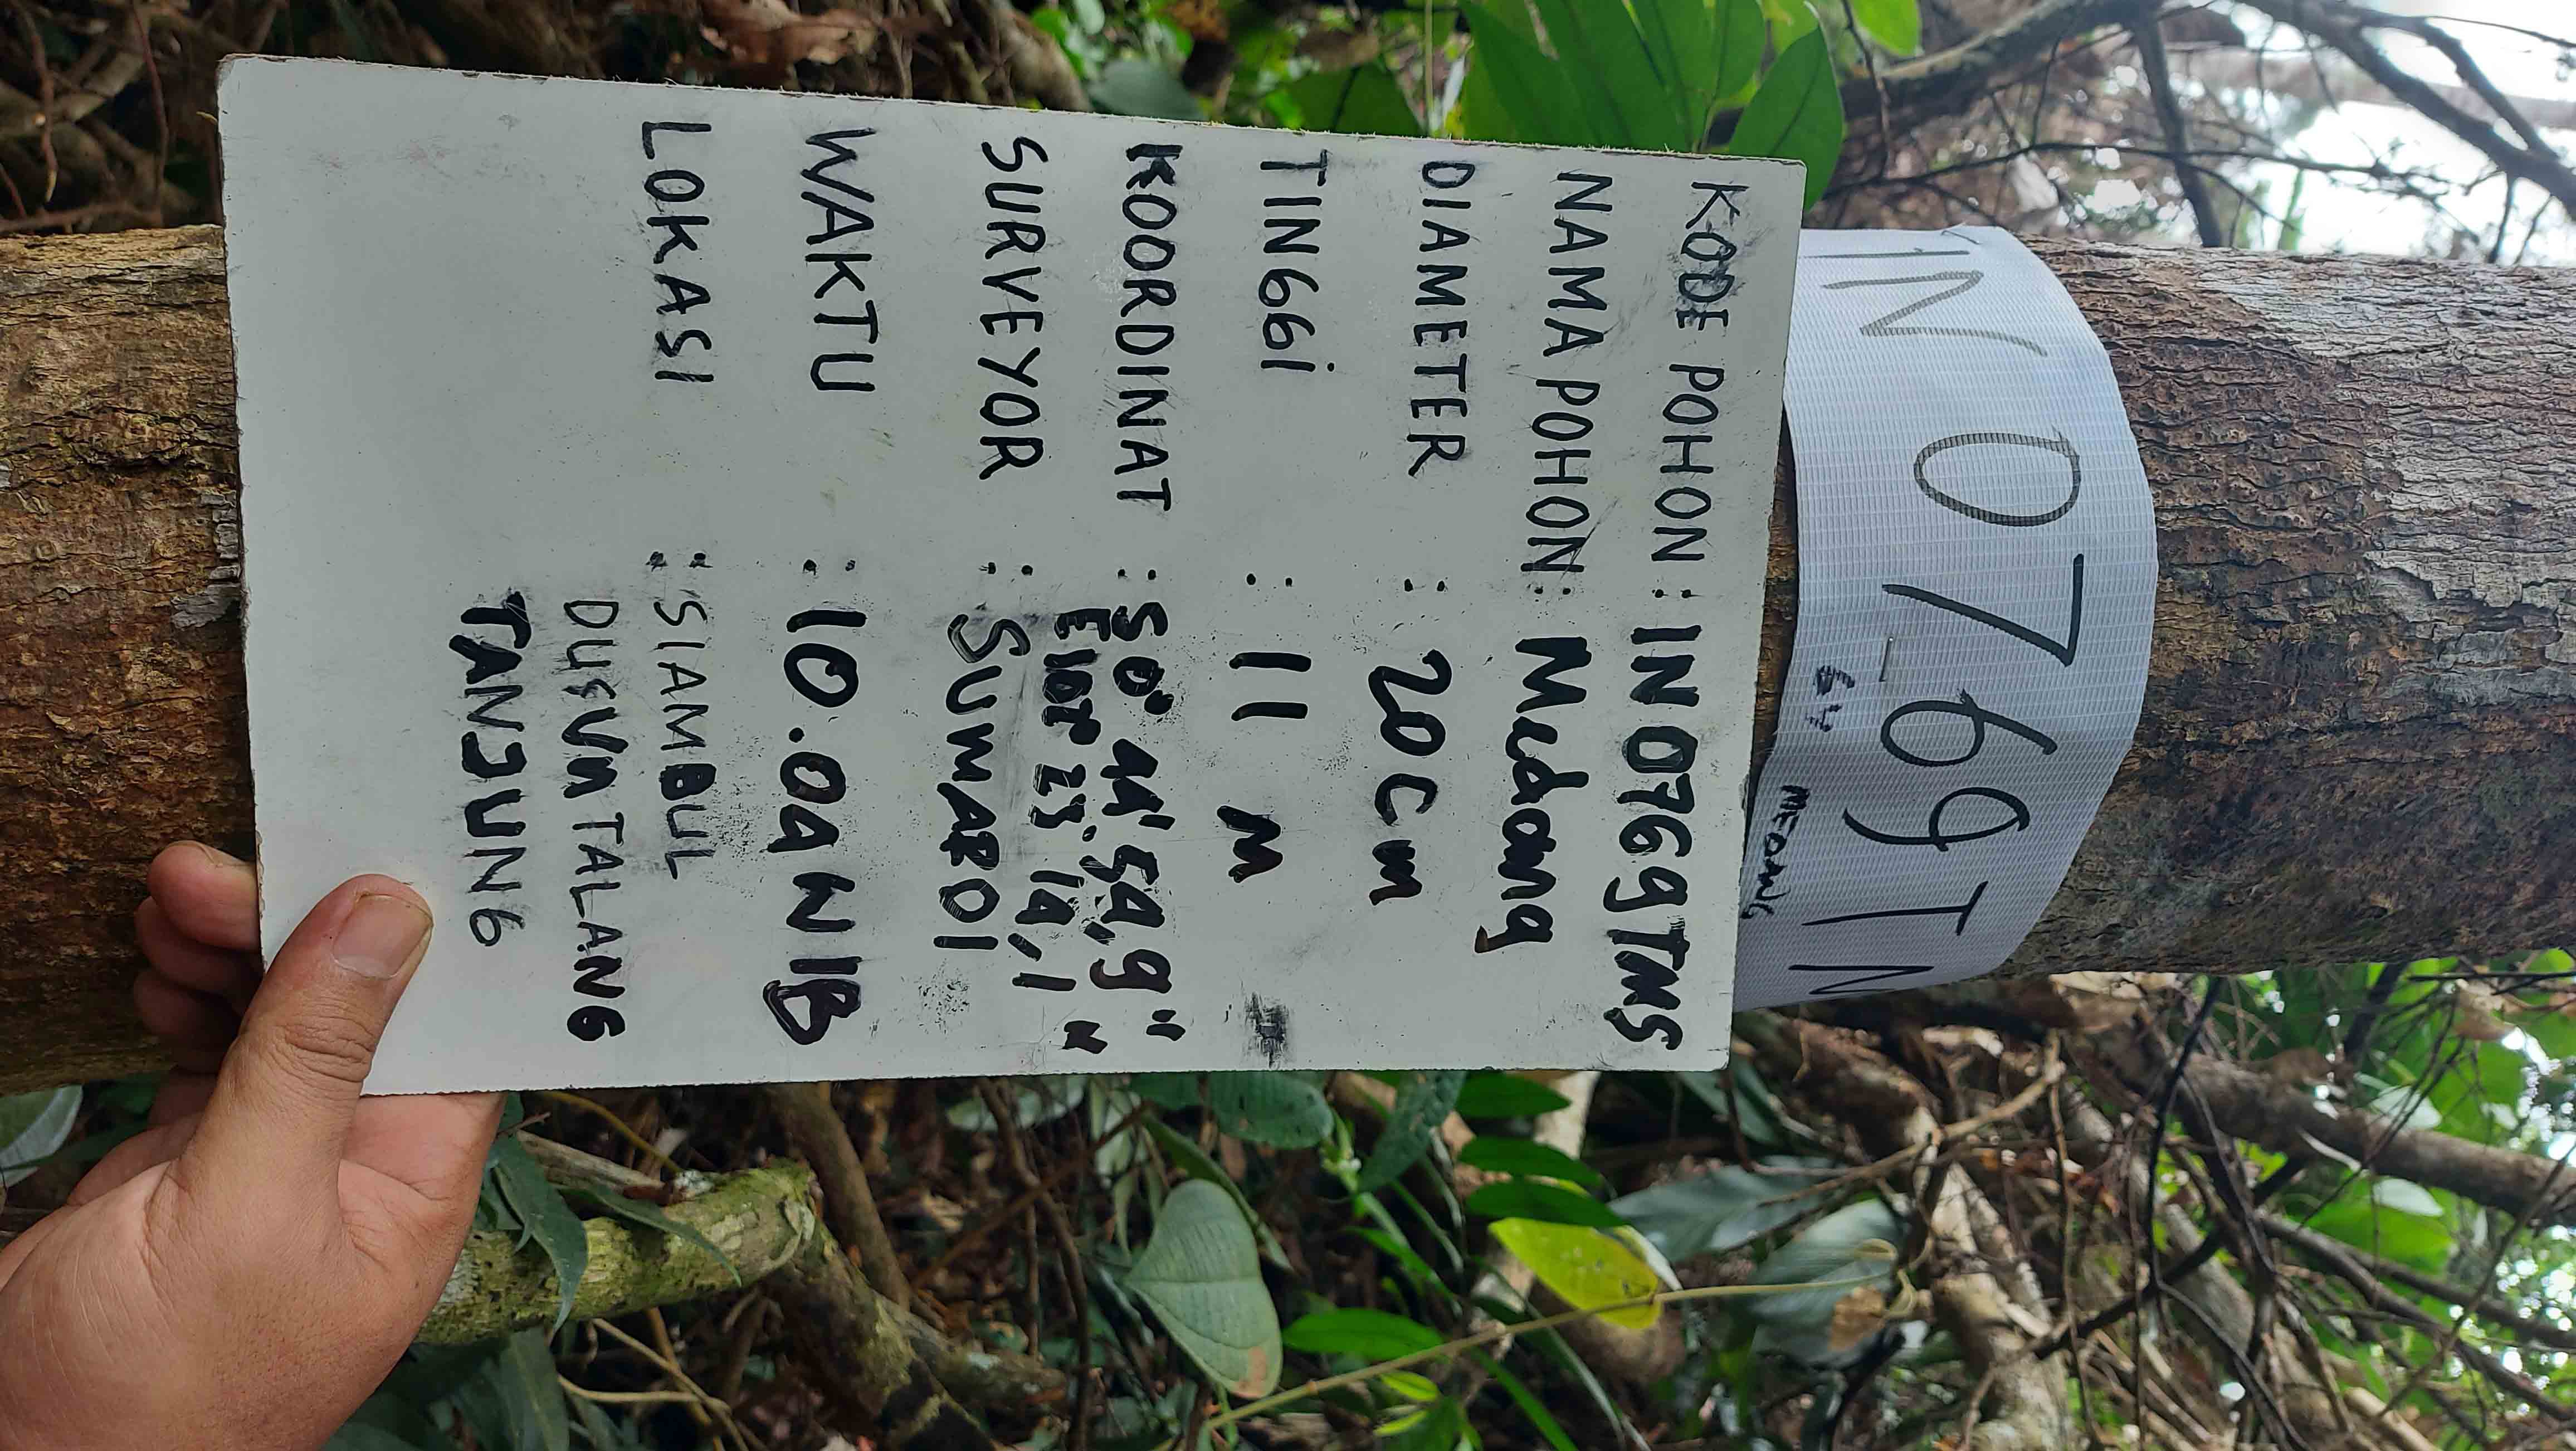 IN 0769 TM
64
MEDANG
KODE POHON : IN 0769 TMS
NAMA POHON : Medang
DIAMETER : 20 Cm
TINGGi : 11 M
KOORDINAT : S 0° 44' 54,9"
E 102° 23' 14,1"
SURVEYOR : SUMARDI
WAKTU : 10.04 WIB
LOKASI : SIAMBUL
DUSUN TALANG
TANJUNG